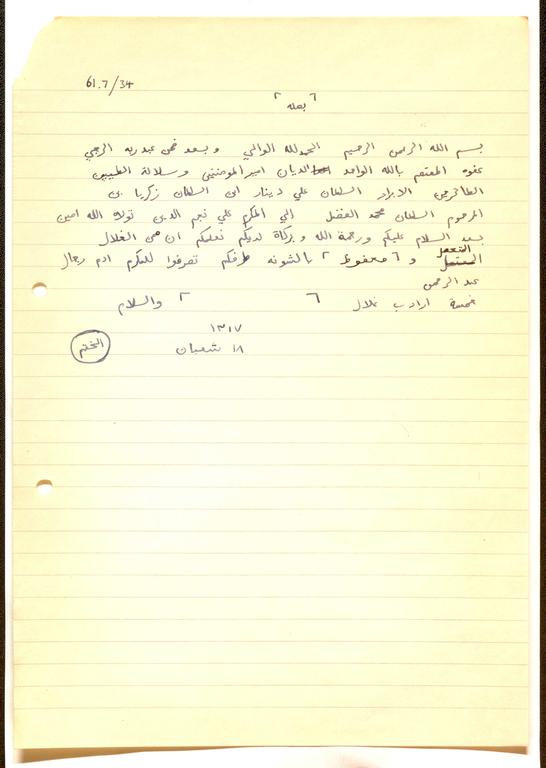 61.7/34
٦ بعله ٢
بسم الله الرحمن الرحيم الحمد لله الوالي وبعد فمن عبد ربه الرجي
عفوه المعتصم بالله الواحد الديان امير المومنين وسلالة الطيبين
الطاهرين الابرار السلطان علي دينار ابن السلطان زكريا بن
المرحوم السلطان محمد الفضل الي المكرم علي نجم الدين تولاه الله امين
بعد السلام عليكم ورحمة الله وبركاة لديكم نعلمكم ان من الغلال
و ٦ محفوظ ٢ بالشونه طرفكم تصرفوا للمكرم ادم رجال
عبد الرحمن
خمسة ارادب غلال ٦ ٢ والسلام
١٣١٧
١٨ شعبان
الختم